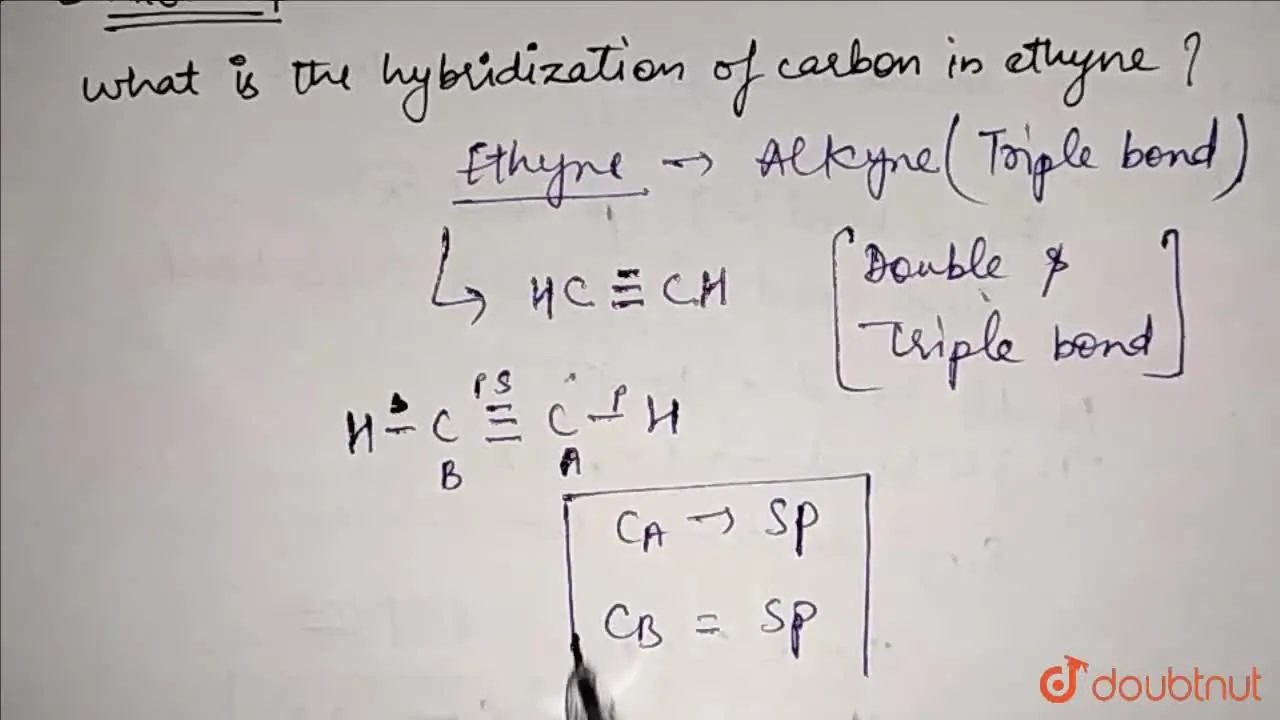 What is the hybridization of carbon in ethyne ?
Ethyne → Alkyne ( Triple bond )
↳ HC ≡ CH
[ Double &
Triple bond ]
P S
H -s C ≡ C -P H
B A
CA → SP
CB = SP
doubtnut